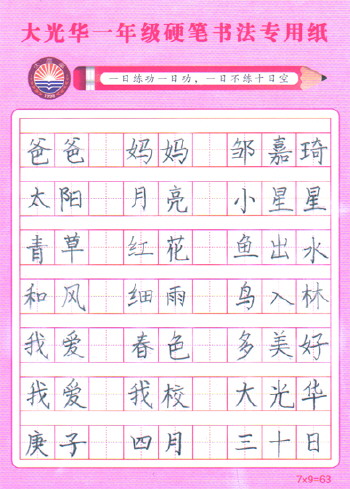 大光华一年级硬笔书法专用纸
一日练功一日功，一日不练十日空
爸爸 妈妈 邹嘉琦
太阳 月亮 小星星
青草 红花 鱼出水
和风 细雨 鸟入林
我爱 春色 多美好
我爱 我校 大光华
庚子 四月 三十日
7×9=63